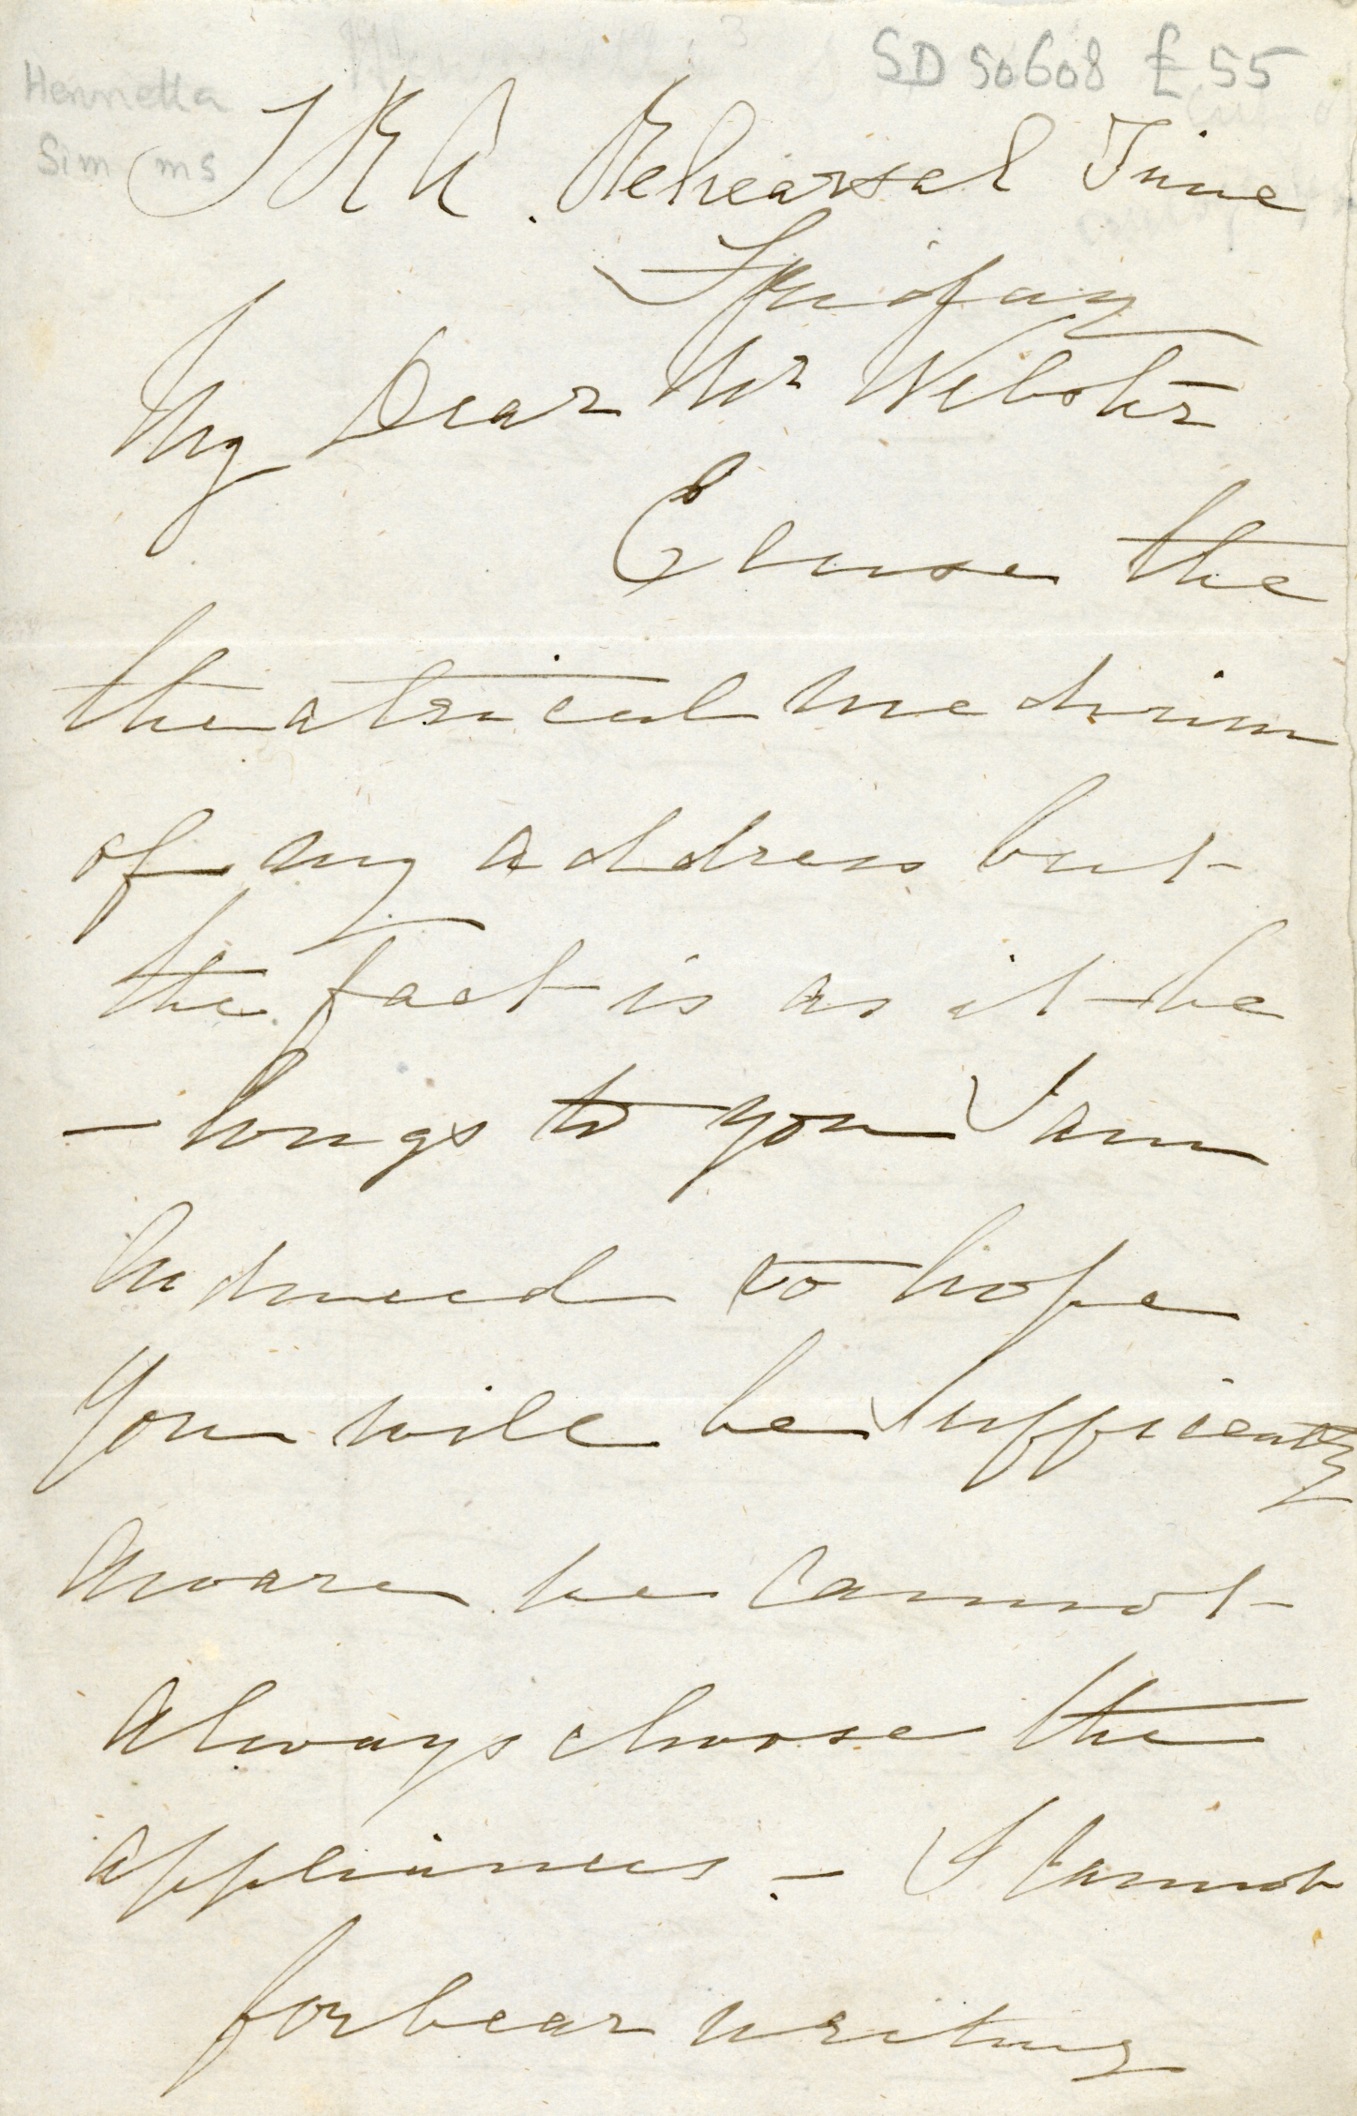 SD 50608 £55
Henrietta
Simms
T R A. Rehearsal Time
Friday
My Dear Mr Webster
Excuse the
theatrical medium
of my address but
the fact is as it be
- longs to you I am
induced to hope
You will be sufficiently
aware we cannot
always choose the
appliances. - I cannot
forbear writing